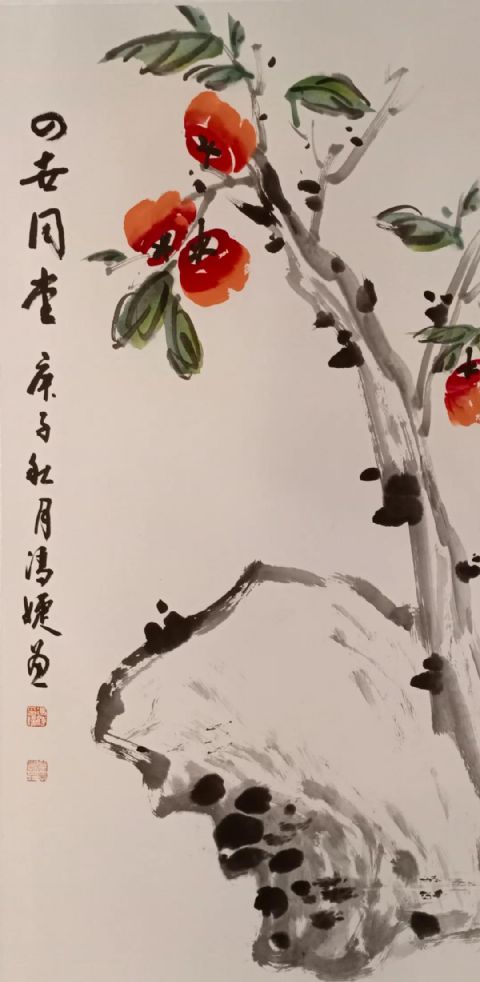 四世同堂 庚子秋月冯婕画